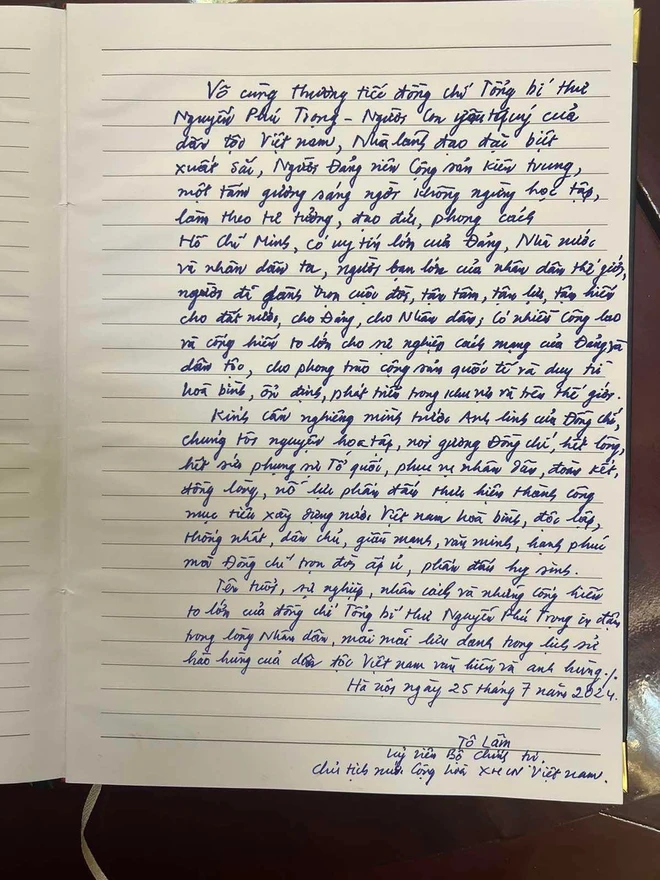 Vô cùng thương tiếc đồng chí Tổng bí thư
Nguyễn Phú Trọng - Người con yêu quý của
dân tộc Việt Nam, Nhà lãnh đạo đặc biệt
xuất sắc, Người Đảng viên Cộng sản Kiên trung,
một tấm gương sáng ngời không ngừng học tập,
làm theo tư tưởng, đạo đức, phong cách
Hồ Chí Minh, có uy tín lớn của Đảng, Nhà nước
và nhân dân ta, người bạn lớn của nhân dân thế giới,
người đã dành trọn cuộc đời, tận tâm, tận lực, tận hiến
cho đất nước, cho Đảng, cho Nhân dân; Có nhiều Công lao
và cống hiến to lớn cho sự nghiệp cách mạng của Đảng và
dân tộc, cho phong trào cộng sản quốc tế và duy trì
hoà bình, ổn định, phát triển trong khu vực và trên thế giới.
Kính cẩn nghiêng mình trước Anh linh của Đồng chí,
chúng tôi nguyện học tập, noi gương Đồng chí, hết lòng,
hết sức phụng sự Tổ quốc, phục vụ nhân dân, đoàn kết,
đồng lòng, nỗ lực phấn đấu thực hiện thành công
mục tiêu xây dựng nước Việt Nam hoà bình, độc lập,
thống nhất, dân chủ, giàu mạnh, văn minh, hạnh phúc
mà Đồng chí trọn đời ấp ủ, phấn đấu hy sinh.
Tên tuổi, sự nghiệp, nhân cách và những cống hiến
to lớn của đồng chí Tổng bí thư Nguyễn Phú Trọng in đậm
trong lòng Nhân dân, mãi mãi lưu danh trong lịch sử
hào hùng của dân tộc Việt Nam văn hiến và anh hùng./.
Hà nội ngày 25 tháng 7 năm 2024.
Tô Lâm
Uỷ viên Bộ Chính trị.
Chủ tịch nước Cộng hoà XHCN Việt Nam.